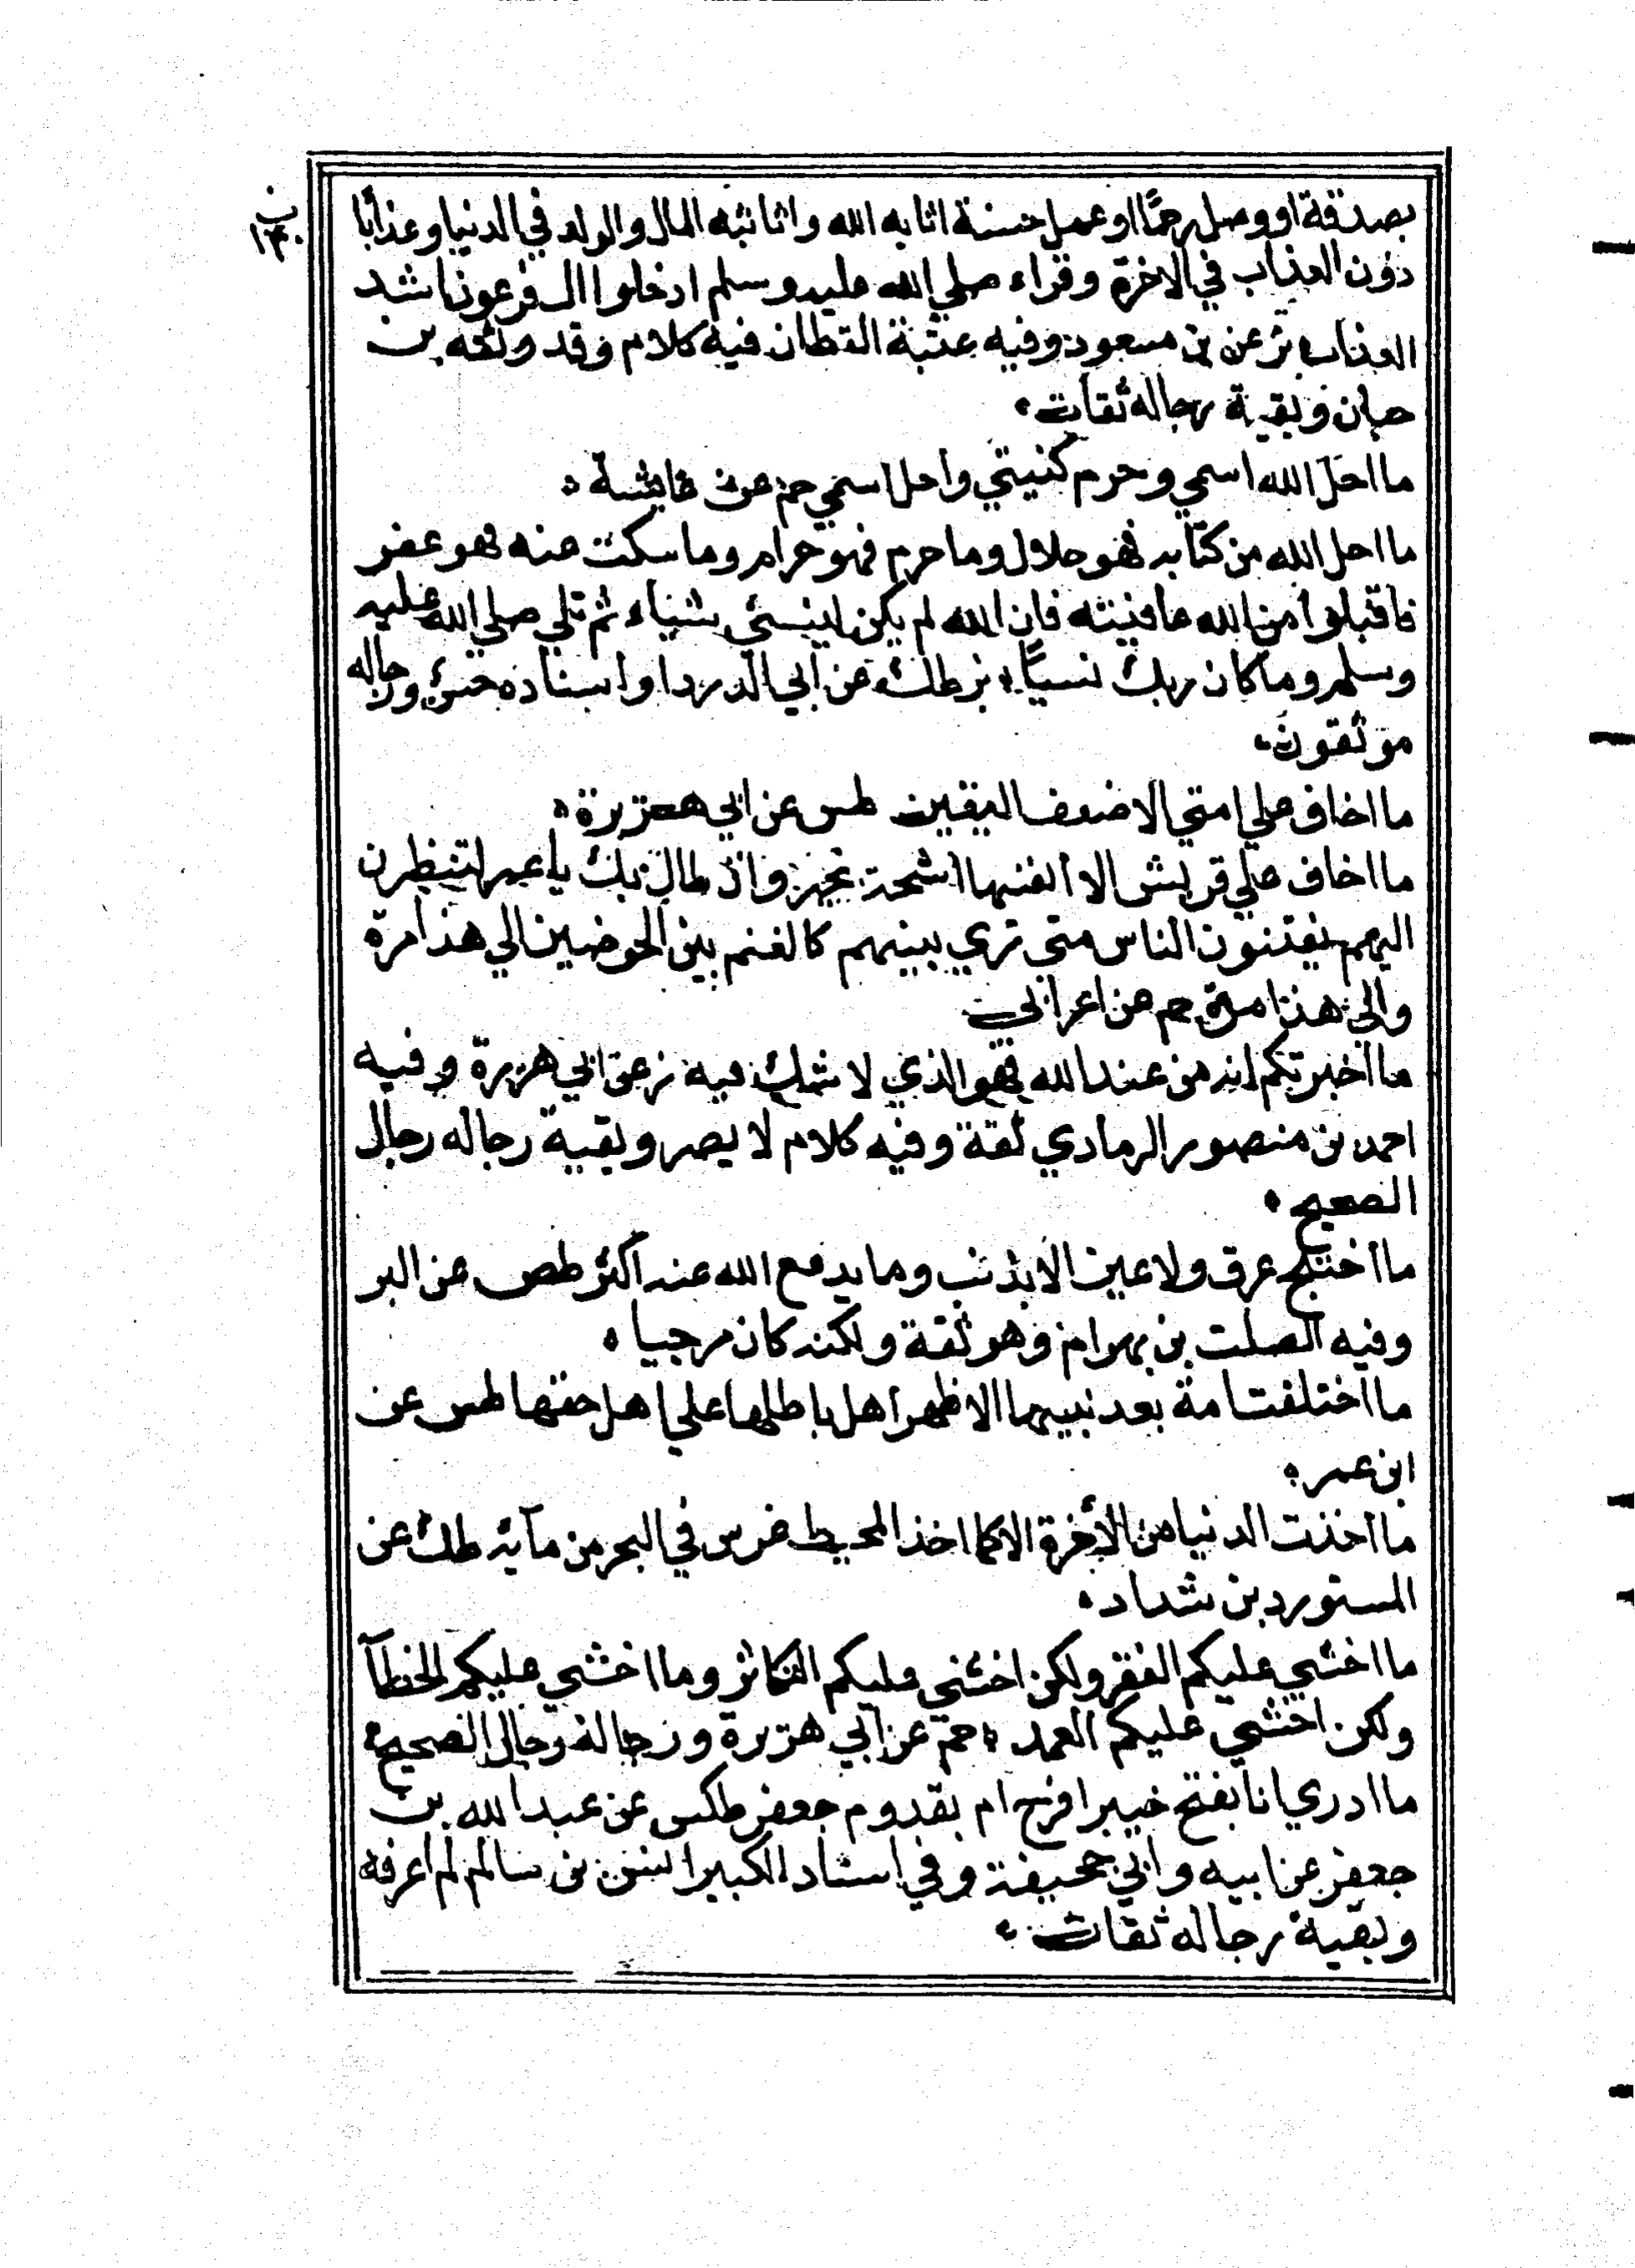 ب
١٣٠
بصدقة او وصل رحمًا او عمل حسنة اثابه الله واثاثبه المال والولد في الدنيا وعذابا
دون العذاب في الاخرة وقراء صلي الله عليه وسلم ادخلوا ال فرعون اشد
العذاب بز عن بن مسعود وفيه عتبة القطان فيه كلام وقد وثقه بن
حبان وبقية رجاله ثقات
ما احل الله اسمي وحرم كنيتي واحل اسمي حم عن عايشة
ما احل الله من كتابه فهو حلال وما حرم فهو حرام وما سكت عنه فهو عفو
فاقبلوا من الله عافيته فان الله لم يكن لينسي شياء ثم تلي صلي الله عليه
وسلم وما كان ربك نسيًا بز طك عن ابي الدردا واسناده حسن ورجاله
موثقون
ما اخاف علي امتي الا ضعف اليقين طس عن ابي هريرة
ما اخاف علي قريش الا انفسها اشحة بجرة وان طال بك يا عمر لتنظرن
اليهم يفتنون الناس حتي تري بينهم كالغنم بين الحوضين الي هذا مرة
والي هذا مرة حم عن اعرابي
ما اخبرتكم انه من عند الله فهو الذي لا شك فيه بز عن ابي هريرة وفيه
احمد بن منصور الرمادي ثقة وفيه كلام لا يضر وبقية رجاله رجال
الصحيح
ما اختلج عرق ولا عين الا بذنب وما يدفع الله عنه اكثر طص عن البر
وفيه الصلت بن بهرام وهو ثقة ولكنه كان مرجيا
ما اختلفت امة بعد نبيها الا ظهر اهل باطلها علي اهل حقها طس عن
ابن عمر
ما اخذت الدنيا من الأخرة الا كما اخذ المخيط غرس في البحر من مآيه طك عن
المستورد بن شداد
ما اخشي عليكم الفقر ولكن اخشي عليكم التكاثر وما اخشي عليكم الخطآ
ولكن اخشي عليكم العمد حم عن ابي هريرة ورجاله رجال الصحيح
ما ادري انا بفتح خيبر افرح ام بقدوم جعفر طكس عن عبد الله بن
جعفر عن ابيه وابي جحيفة وفي اسناد الكبير انس بن سالم لم اعرفه
وبقية رجاله ثقات